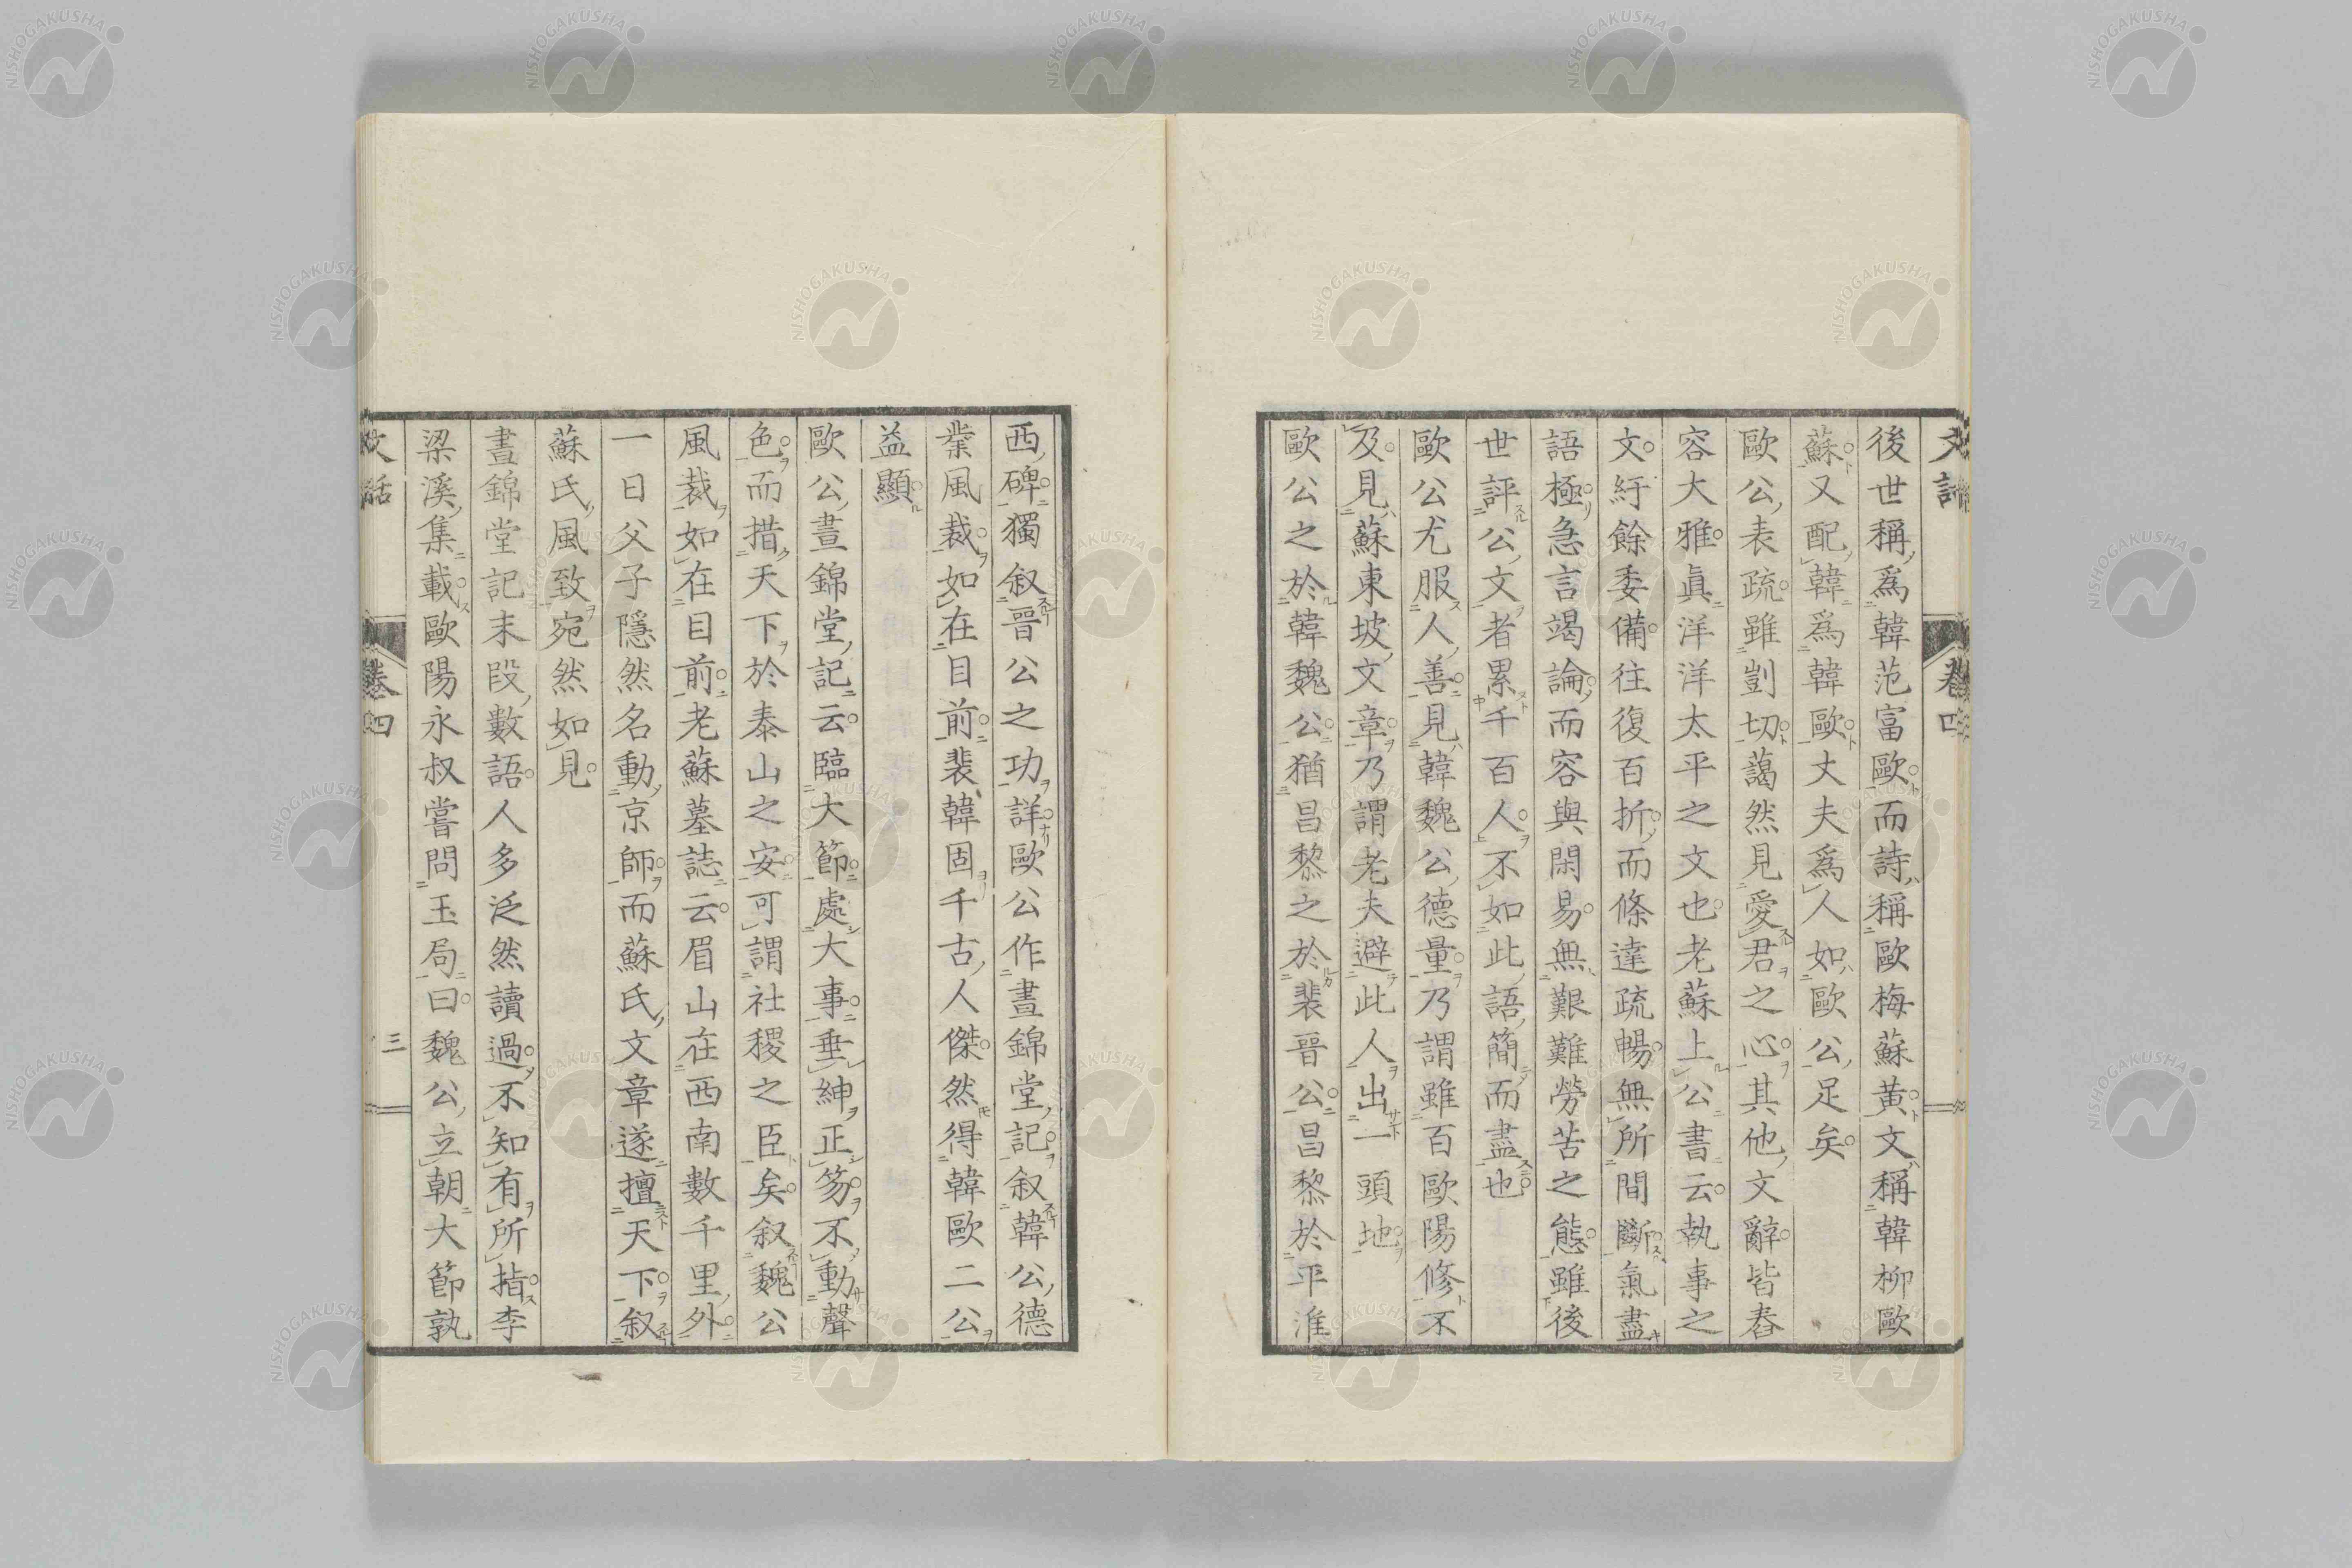 文話
卷四
後世稱爲韓范富歐而詩稱歐梅蘇黃文稱韓柳歐
蘇又配韓爲韓歐丈夫爲人如歐公足矣
歐公表疏雖剴切藹然見愛君之心其他文辭皆舂
容大雅眞洋洋太平之文也老蘇上公書云執事之
文紆餘委備往復百折而條達疏暢無所間斷氣盡
語極急言竭論而容與閑易無艱難勞苦之態雖後
世評公文者累千百人不如此語簡而盡也
歐公尤服人善見韓魏公德量乃謂雖百歐陽修不
及見蘇東坡文章乃謂老夫避此人出一頭地
歐公之於韓魏公猶昌黎之於裴晉公昌黎於平淮
西碑獨叙晉公之功詳歐公作晝錦堂記叙韓公德
業風裁如在目前裴韓固千古人傑然得韓歐二公
益顯
歐公晝錦堂記云臨大節處大事垂紳正笏不動聲
色而措天下於泰山之安可謂社稷之臣矣叙魏公
風裁如在目前老蘇墓誌云眉山在西南數千里外
一日父子隱然名動京師而蘇氏文章遂擅天下叙
蘇氏風致宛然如見
晝錦堂記末段數語人多泛然讀過不知有所指李
梁溪集載歐陽永叔嘗問玉局曰魏公立朝大節孰
文話
卷四
三
NISHOGAKUSHA